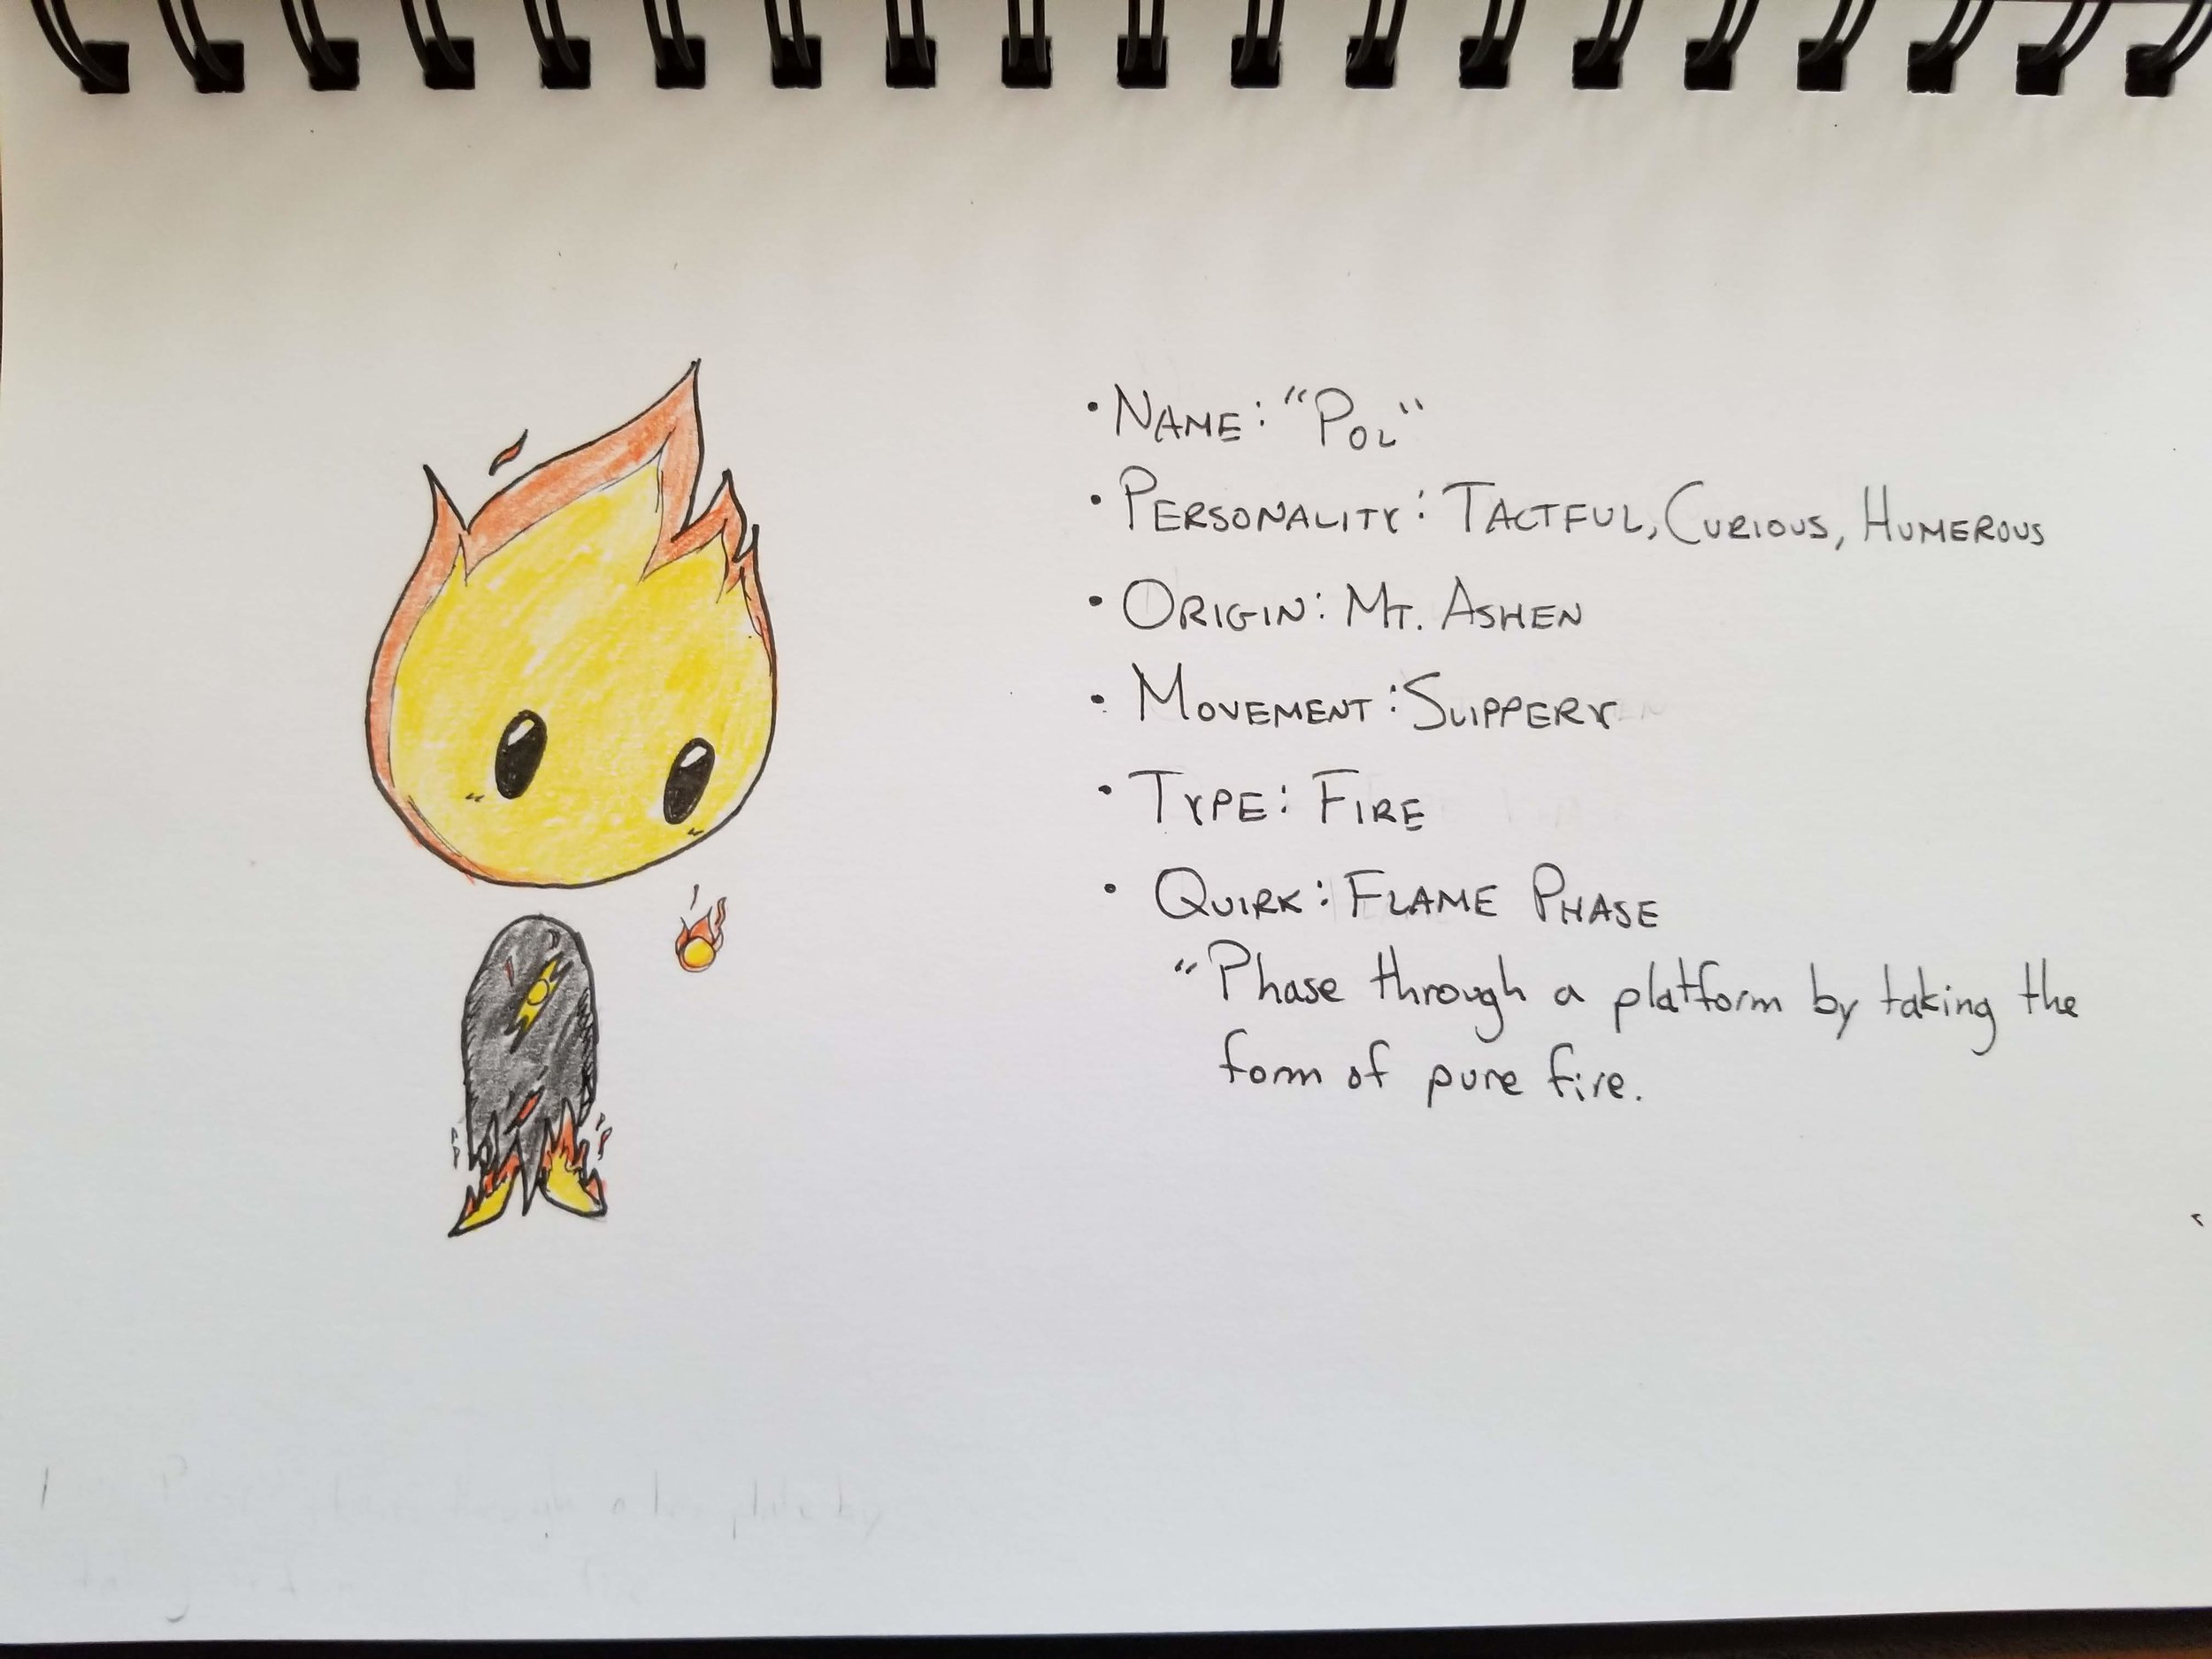 • NAME: "POL"
• PERSONALITY: TACTFUL, CURIOUS, HUMEROUS
• ORIGIN: MT. ASHEN
• MOVEMENT: SLIPPERY
• TYPE: FIRE
• QUIRK: FLAME PHASE
"Phase through a platform by taking the
form of pure fire.